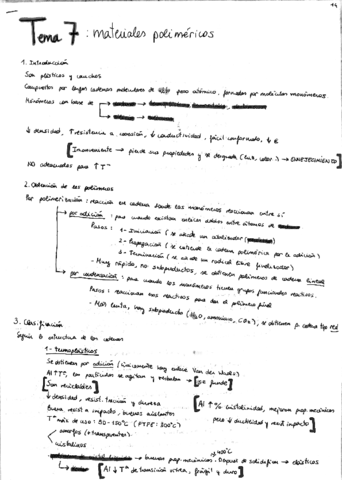 Tema 7: materiales poliméricos
1. Introducción
Son plásticos y cauchos
Compuestos por largas cadenas moleculares de peso atómico, formadas por moléculas monómeros
Monómeros con base de
↓ densidad, ↑ resistencia a corrosión, ↓ conductividad, fácil conformado, ↓ €
[Inconveniente → pierde sus propiedades y se degrada (luz, calor) → ENVEJECIMIENTO]
NO adecuados para ↑Tª
2. Obtención de los polímeros
Por polimerización: reacción en cadena donde los monómeros reaccionan entre sí
→ por adición: para cuando existan enlaces dobles entre átomos de
Pasos: 1- Iniciación (se añade un catalizador)
2- Propagación (se extiende la cadena polimérica por la adición)
3- Terminación (se añade un radical libre finalizador)
- Muy rápido, no subproductos, se obtienen polímeros de cadena lineal
→ por condensación: para cuando los monómeros tienen grupos funcionales reactivos.
Pasos: reaccionan más reactivos para dar el polímero final
- Más lenta, hay subproducto (H2O, amoniaco, CO2), se obtienen p. cadena tipo red
3. Clasificación
Según la estructura de su cadena
1- Termoplásticos
Se obtienen por adición (únicamente hay enlace Van der Waals)
Al ↑Tª, las partículas se agitan y [se funde]
[Son reciclables]
↓ densidad, resist. tracción y dureza
Buena resist a impacto, buenos aislantes
Tª máx de uso: 90-150°C (PTFE: 300°C)
[Al ↑ % cristalinidad, mejoran prop. mecánicas pero ↓ ductilidad y resist impacto]
amorfos (+ transparentes)
cristalinos
→ buenas prop. mecánicas. Después de solidificar → elásticos
[Al ↓ Tª de transición vítrea, frágil y duro]